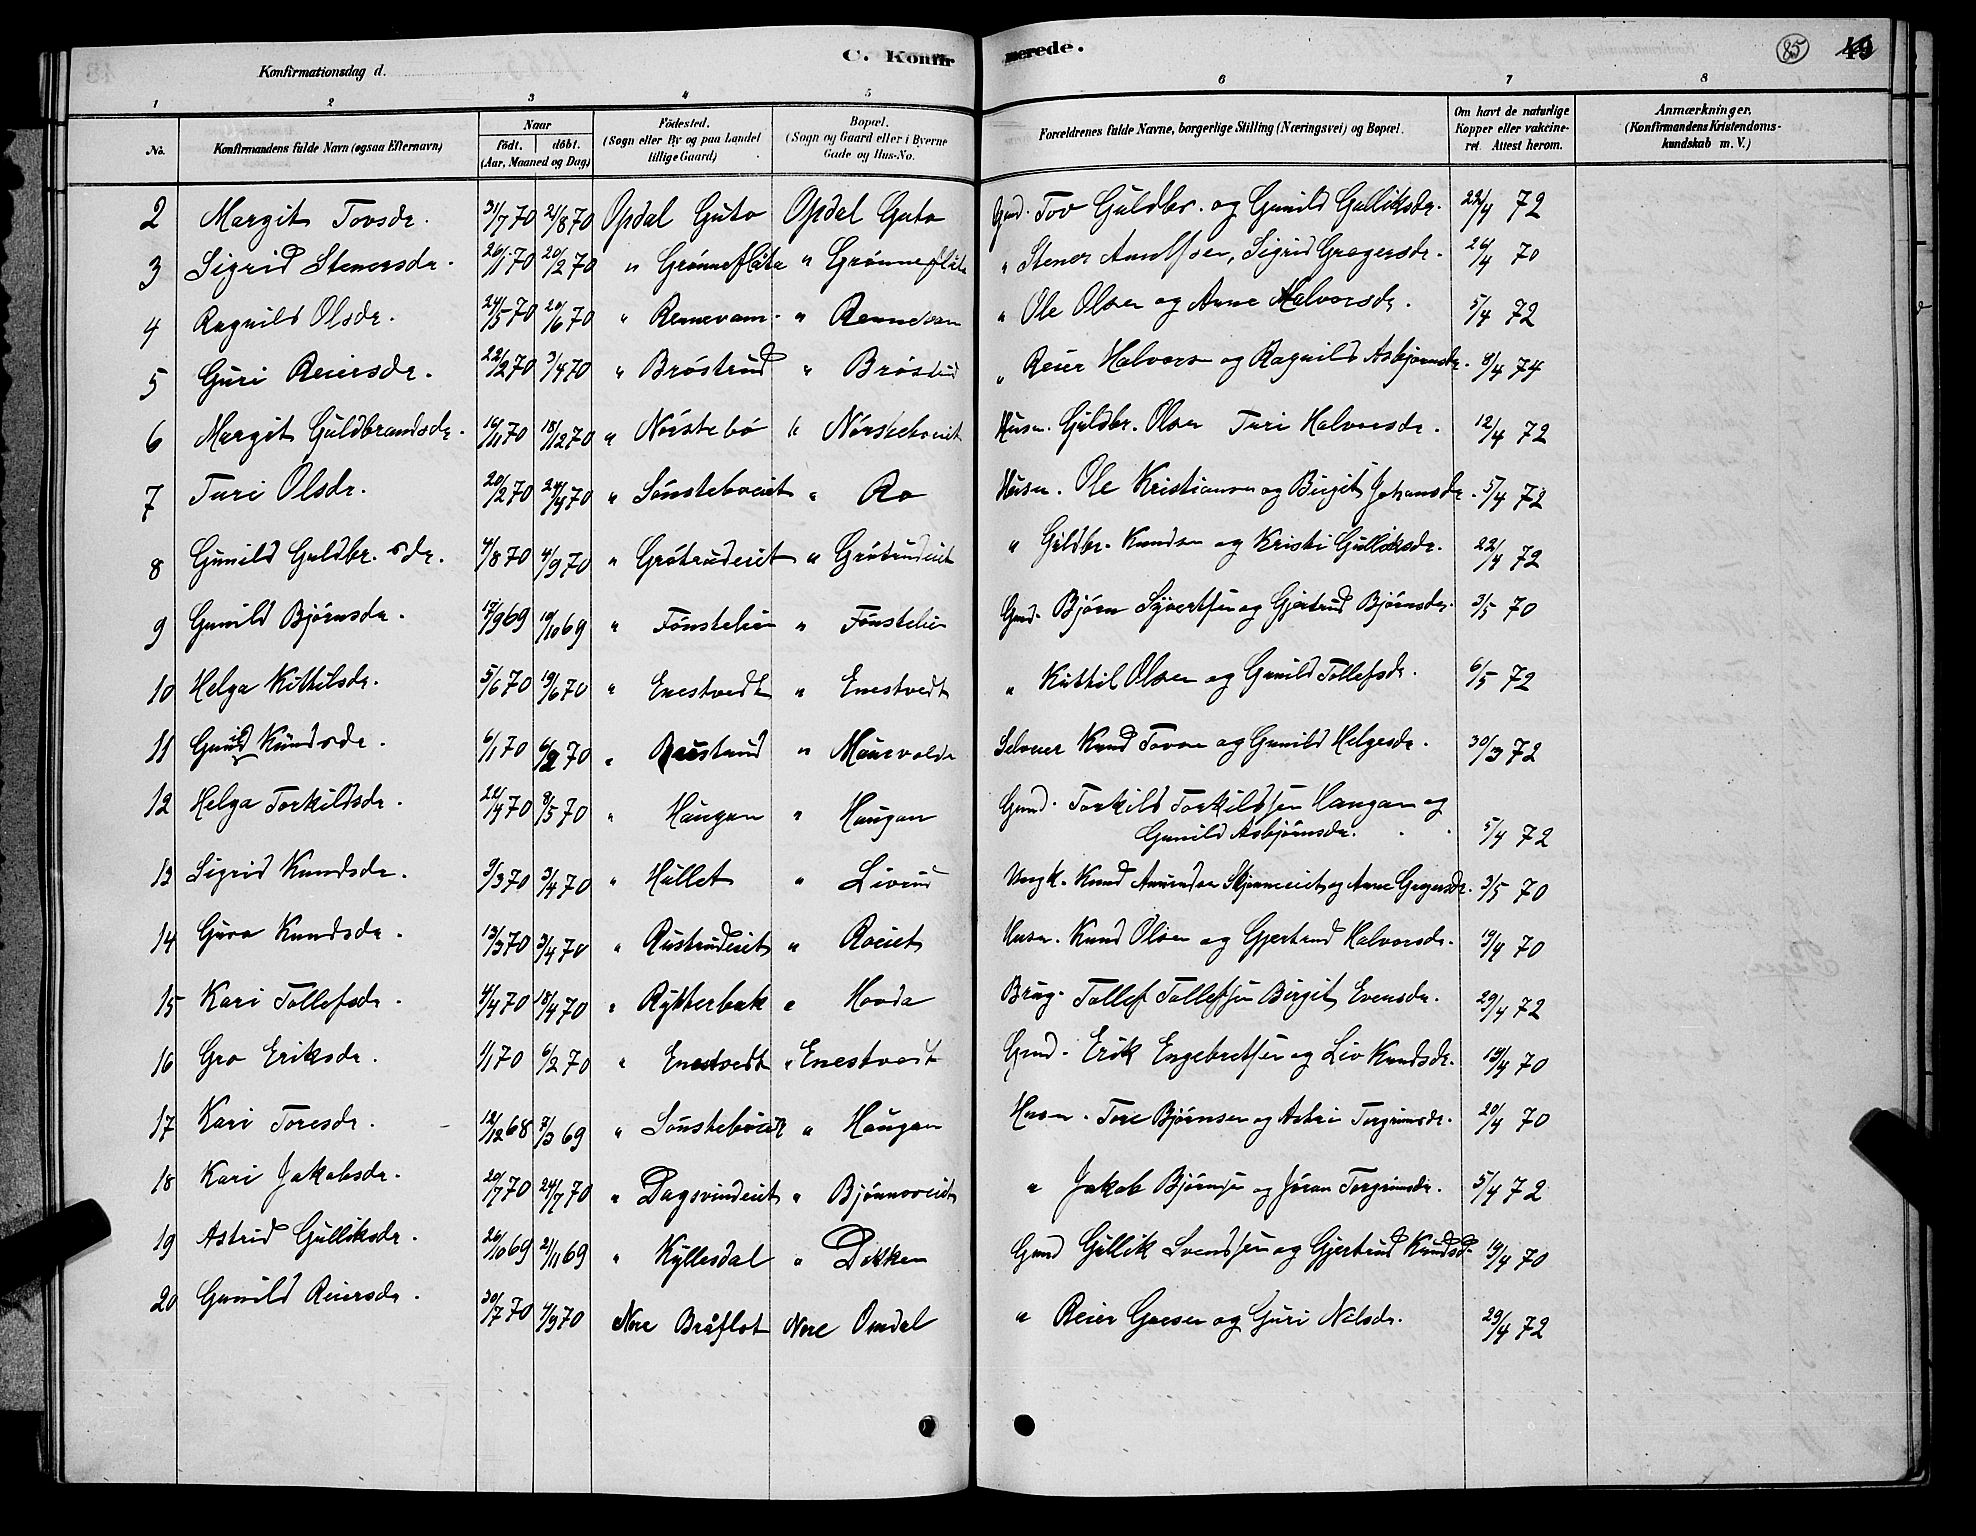 C. Konfirmerede.
85 49
Konfirmationsdag d.
1 2 3 4 5 6 7 8
No. Konfirmandens fulde Navn (ogsaa Efternavn) Naar födt. döbt. (Aar, Maaned og Dag) Födested. (Sogn eller By og paa Landet tillige Gaard) Bopæl. (Sogn og Gaard eller i Byerne Gade og Hus-No. Forældrenes fulde Navne, borgerlige Stilling (Næringsvei) og Bopæl. Om havt de naturlige Kopper eller vakcineret. Attest herom. Anmærkninger. (Konfirmandens Kristendomskundskab m. V.)
2 Margit Tovsdr. 31/7 70 21/8 70 Opdal Guto Opdal Guto Gmd. Tov Guldbr. og Gunild Gulliksdr. 22/4 72
3 Sigrid Stenersdr. 26/1 70 20/2 70 " Grønneflåta " Grønneflåta " Stener Arnulfsen, Sigrid Gregersdr. 26/4 70
4 Ragnild Olsdr. 24/5 70 20/6 70 " Rennevam " Rennevam " Ole Olsen og Anne Halvorsdr. 5/4 72
5 Guri Reiersdr. 22/2 70 3/4 70 " Brøstrud " Brøstrud " Reier Halvors. og Ragnild Asbjørnsdr. 8/4 74
6 Margit Guldbrandsdr. 16/11 70 18/12 70 " Nørstebø " Nørstebøeiet Husm. Guldbr. Olsen Turi Halvorsdr. 12/4 72
7 Turi Olsdr. 20/2 70 24/4 70 " Sønsteboeiet " Ro Husm. Ole Kristiansen og Birgit Johansdr. 5/4 72
8 Gunild Guldbr.sdr. 4/8 70 4/9 70 " Grøtrudeiet " Grøtrudeiet " Guldbr. Knudsen og Kristi Gulliksdr. 22/4 72
9 Gunild Bjørnsdr. 17/9 69 10/10 69 " Fønstelien " Fønstelien Gmd. Bjørn Syvertsen og Gjertrud Bjørnsdr. 3/5 70
10 Helga Kittilsdr. 5/6 70 19/6 70 " Enestvedt " Enestvedt " Kittil Olsen og Gunild Tollefsdr. 6/5 72
11 Gunild Knudsdr. 6/1 70 6/2 70 " Rustrud " Mausvolde Selveier Knud Toven og Gunild Helgesdr. 30/3 72
12 Helga Torkildsdr. 22/4 70 8/5 70 " Haugan " Haugan Gmd. Torkild Torkildsen Haugan og
Gunild Asbjørnsdr. 5/4 72
13 Sigrid Knudsdr. 9/3 70 3/4 70 " Hullet " Liverud Ungk. Knud Amundsen Skjønneeiet og Anne Gregersdr. 3/5 70
14 Guro Knudsdr. 13/3 70 3/4 70 " Rustrudeiet " Roeiet Husm. Knud Olsen og Gjertrud Halvorsdr. 19/4 70
15 Kari Tollefsdr. 4/4 70 18/4 70 " Rytterbak " Hovda Brug. Tollef Tollefsen Birgit Evensdr. 29/4 72
16 Gro Eriksdr. 1/1 70 6/2 70 " Enestvedt " Enestvedt Gmd. Erik Engebretsen og Liv Knudsdr. 19/4 70
17 Kari Toresdr. 12/12 68 7/3 69 " Sønstebøeiet " Haugan Husm. Tore Bjørnsen og Astri Torgrimsdr. 20/4 70
18 Kari Jakobsdr. 20/7 70 24/7 70 " Dagsvindeiet " Bjønnoeiet " Jakob Bjørnsen og Jøran Torgrimsdr. 5/4 72
19 Astrid Gulliksdr. 26/10 69 21/11 69 " Kyllesdal " Dokken Gmd Gullik Svendsen og Gjertrud Knudsd. 19/4 70
20 Gunild Reiersdr. 30/7 70 4/9 70 Nore Bråflot Nore Omdal " Reier Goesen og Guri Nilsdr. 29/4 72